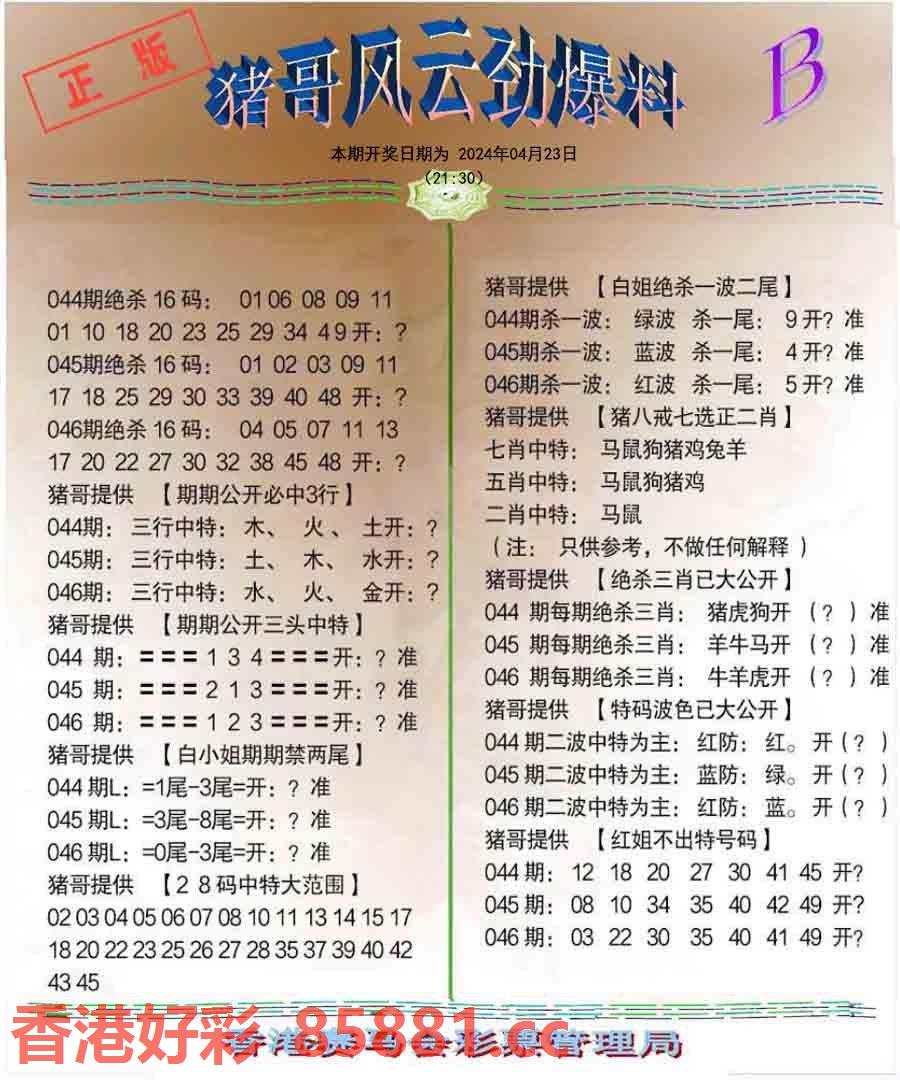 正版
猪哥风云劲爆料
B
本期开奖日期为 2024年04月23日
(21:30)
044期绝杀16码: 01 06 08 09 11
01 10 18 20 23 25 29 34 49 开: ?
045期绝杀16码: 01 02 03 09 11
17 18 25 29 30 33 39 40 48 开: ?
046期绝杀16码: 04 05 07 11 13
17 20 22 27 30 32 38 45 48 开: ?
猪哥提供 【期期公开必中3行】
044期: 三行中特: 木、 火、 土开: ?
045期: 三行中特: 土、 木、 水开: ?
046期: 三行中特: 水、 火、 金开: ?
猪哥提供 【期期公开三头中特】
044 期: === 1 3 4 ===开: ? 准
045 期: === 2 1 3 ===开: ? 准
046 期: === 1 2 3 ===开: ? 准
猪哥提供 【白小姐期期禁两尾】
044期L: =1尾-3尾=开: ? 准
045期L: =3尾-8尾=开: ? 准
046期L: =0尾-3尾=开: ? 准
猪哥提供 【28码中特大范围】
02 03 04 05 06 07 08 10 11 13 14 15 17
18 20 22 23 25 26 27 28 35 37 39 40 42
43 45
猪哥提供 【白姐绝杀一波二尾】
044期杀一波: 绿波 杀一尾: 9开? 准
045期杀一波: 蓝波 杀一尾: 4开? 准
046期杀一波: 红波 杀一尾: 5开? 准
猪哥提供 【猪八戒七选正二肖】
七肖中特: 马鼠狗猪鸡兔羊
五肖中特: 马鼠狗猪鸡
二肖中特: 马鼠
(注: 只供参考，不做任何解释)
猪哥提供 【绝杀三肖已大公开】
044 期每期绝杀三肖: 猪虎狗开 (?)准
045 期每期绝杀三肖: 羊牛马开 (?)准
046 期每期绝杀三肖: 牛羊虎开 (?)准
猪哥提供 【特码波色已大公开】
044期二波中特为主: 红防: 红。开(?)
045期二波中特为主: 蓝防: 绿。开(?)
046期二波中特为主: 红防: 蓝。开(?)
猪哥提供 【红姐不出特号码】
044期: 12 18 20 27 30 41 45 开?
045期: 08 10 34 35 40 42 49 开?
046期: 03 22 30 35 40 41 49 开?
香港好彩 85881.cc
香港赛马会彩票管理局